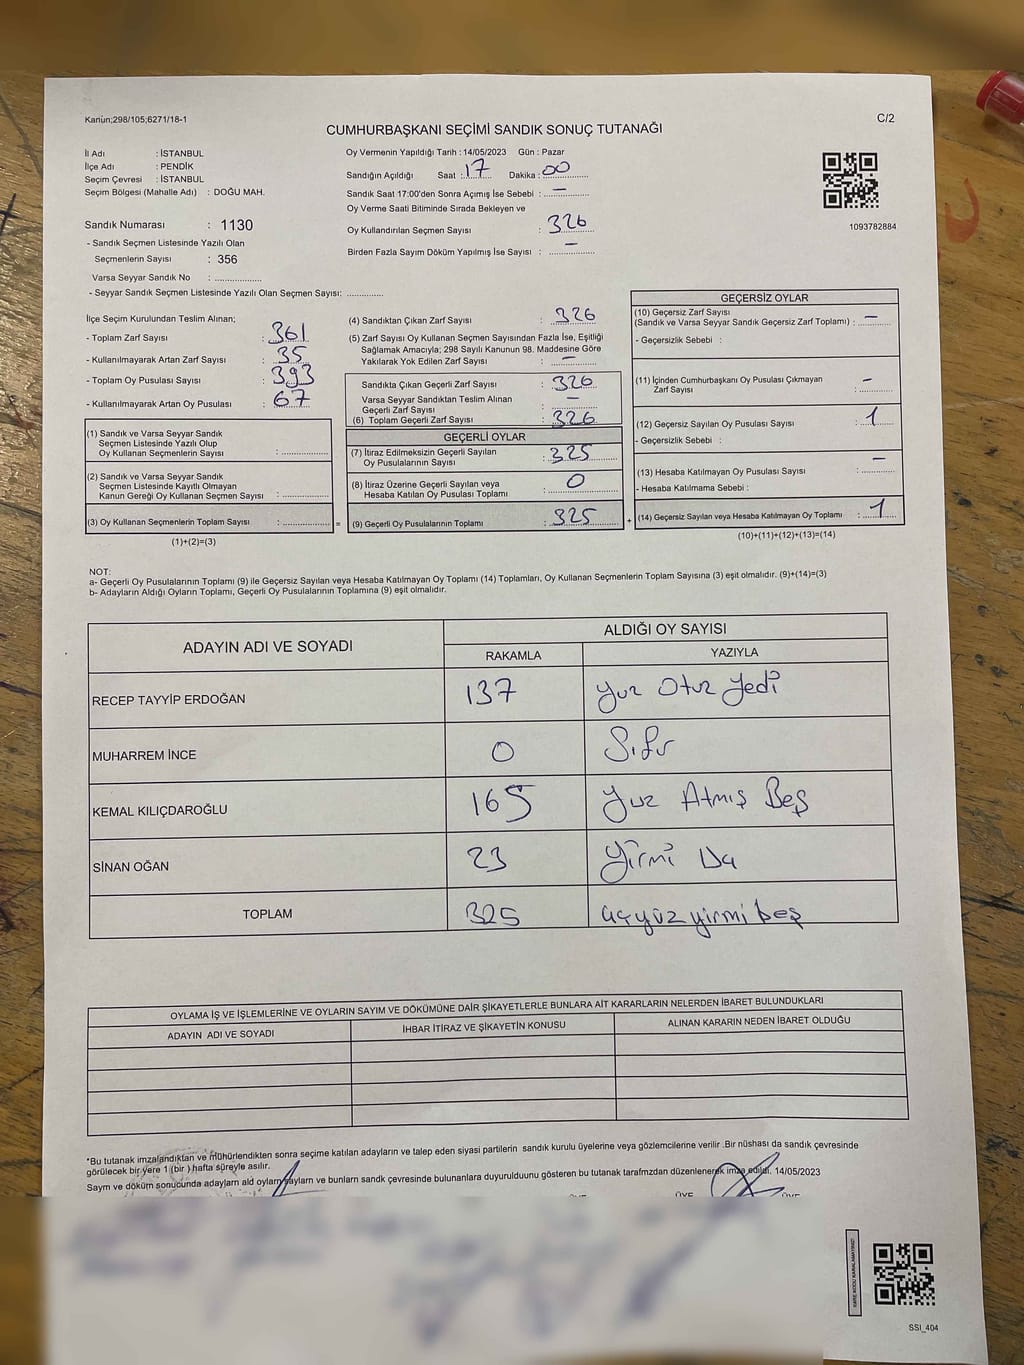 Kanun;298/105;6271/18-1
C/2
CUMHURBAŞKANI SEÇİMİ SANDIK SONUÇ TUTANAĞI
İl Adı : İSTANBUL
İlçe Adı : PENDİK
Seçim Çevresi : İSTANBUL
Seçim Bölgesi (Mahalle Adı) : DOĞU MAH.
Oy Vermenin Yapıldığı Tarih : 14/05/2023 Gün : Pazar
Sandığın Açıldığı Saat : 17 Dakika : 00
Sandık Saat 17:00'den Sonra Açımış İse Sebebi : —
Oy Verme Saati Bitiminde Sırada Bekleyen ve
Oy Kullandırılan Seçmen Sayısı : 326
Birden Fazla Sayım Döküm Yapılmış İse Sayısı : —
1093782884
Sandık Numarası : 1130
- Sandık Seçmen Listesinde Yazılı Olan
Seçmenlerin Sayısı : 356
Varsa Seyyar Sandık No : ................
- Seyyar Sandık Seçmen Listesinde Yazılı Olan Seçmen Sayısı: ............
İlçe Seçim Kurulundan Teslim Alınan;
- Toplam Zarf Sayısı : 361
- Kullanılmayarak Artan Zarf Sayısı : 35
- Toplam Oy Pusulası Sayısı : 393
- Kullanılmayarak Artan Oy Pusulası : 67
(1) Sandık ve Varsa Seyyar Sandık
Seçmen Listesinde Yazılı Olup
Oy Kullanan Seçmenlerin Sayısı : ................
(2) Sandık ve Varsa Seyyar Sandık
Seçmen Listesinde Kayıtlı Olmayan
Kanun Gereği Oy Kullanan Seçmen Sayısı : ................
(3) Oy Kullanan Seçmenlerin Toplam Sayısı : ................ =
(1)+(2)=(3)
(4) Sandıktan Çıkan Zarf Sayısı : 326
(5) Zarf Sayısı Oy Kullanan Seçmen Sayısından Fazla İse, Eşitliği
Sağlamak Amacıyla; 298 Sayılı Kanunun 98. Maddesine Göre
Yakılarak Yok Edilen Zarf Sayısı : —
Sandıkta Çıkan Geçerli Zarf Sayısı : 326
Varsa Seyyar Sandıktan Teslim Alınan
Geçerli Zarf Sayısı : —
(6) Toplam Geçerli Zarf Sayısı : 326
GEÇERLİ OYLAR
(7) İtiraz Edilmeksizin Geçerli Sayılan
Oy Pusulalarının Sayısı : 325
(8) İtiraz Üzerine Geçerli Sayılan veya
Hesaba Katılan Oy Pusulası Toplamı : 0
(9) Geçerli Oy Pusulalarının Toplamı : 325 +
GEÇERSİZ OYLAR
(10) Geçersiz Zarf Sayısı
(Sandık ve Varsa Seyyar Sandık Geçersiz Zarf Toplamı) : —
- Geçersizlik Sebebi :
(11) İçinden Cumhurbaşkanı Oy Pusulası Çıkmayan
Zarf Sayısı : —
(12) Geçersiz Sayılan Oy Pusulası Sayısı : 1
- Geçersizlik Sebebi :
(13) Hesaba Katılmayan Oy Pusulası Sayısı : —
- Hesaba Katılmama Sebebi :
(14) Geçersiz Sayılan veya Hesaba Katılmayan Oy Toplamı : 1
(10)+(11)+(12)+(13)=(14)
NOT:
a- Geçerli Oy Pusulalarının Toplamı (9) ile Geçersiz Sayılan veya Hesaba Katılmayan Oy Toplamı (14) Toplamları, Oy Kullanan Seçmenlerin Toplam Sayısına (3) eşit olmalıdır. (9)+(14)=(3)
b- Adayların Aldığı Oyların Toplamı, Geçerli Oy Pusulalarının Toplamına (9) eşit olmalıdır.
ADAYIN ADI VE SOYADI ALDIĞI OY SAYISI
RAKAMLA YAZIYLA
RECEP TAYYİP ERDOĞAN 137 Yuz Otuz Yedi
MUHARREM İNCE 0 Sıfır
KEMAL KILIÇDAROĞLU 165 Yuz Atmış Beş
SİNAN OĞAN 23 Yirmi
TOPLAM 325 üçyüzyirmi beş
OYLAMA İŞ VE İŞLEMLERİNE VE OYLARIN SAYIM VE DÖKÜMÜNE DAİR ŞİKAYETLERLE BUNLARA AİT KARARLARIN NELERDEN İBARET BULUNDUKLARI
ADAYIN ADI VE SOYADI İHBAR İTİRAZ VE ŞİKAYETİN KONUSU ALINAN KARARIN NEDEN İBARET OLDUĞU
*Bu tutanak imzalandıktan ve mühürlendikten sonra seçime katılan adayların ve talep eden siyasi partilerin sandık kurulu üyelerine veya gözlemcilerine verilir .Bir nüshası da sandık çevresinde
görülecek bir yere 1 (bir ) hafta süreyle asılır.
Sayım ve döküm sonucunda adayların ald oyların sayların ve bunların sandk çevresinde bulunanlara duyurulduunu gösteren bu tutanak tarafmzdan düzenlenerek imza edildi. 14/05/2023
ÜYE ÜYE
SSI_404